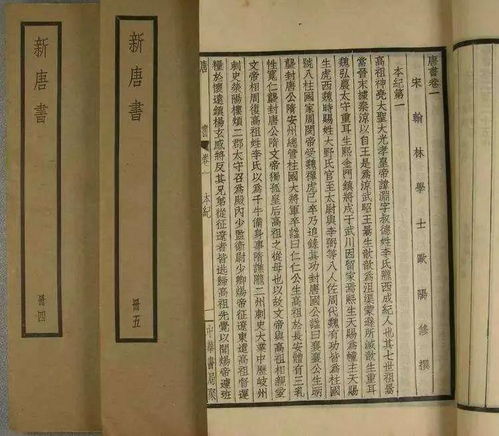 新唐書
冊四
新唐書
冊五
唐書卷一
宋翰林學士歐陽修撰
本紀第一
高祖神堯大聖大光孝皇帝諱淵字叔德姓李氏隴西成紀人也其七世祖暠
當晉末據秦涼以自王是為涼武昭王暠生歆歆為沮渠蒙遜所滅歆生重耳
魏弘農太守重耳生熙金門鎮將戍于武川因留家焉熙生天賜為幢主天賜
生虎西魏時賜姓大野氏官至太尉與李弼等八人佐周代魏有功皆為柱國
號八柱國家周閔帝受魏禪虎已卒乃追錄其功封唐國公諡曰襄襄公生昞
襲封唐公隋安州總管柱國大將軍卒諡曰仁仁公生高祖於長安體有三乳
性寬仁襲封唐公隋文帝獨孤皇后高祖之從母也以故文帝與高祖相親愛
文帝相周復高祖姓李氏以為千牛備身事隋譙隴二州刺史大業中歷岐州
刺史滎陽樓煩二郡太守召為殿內少監衛尉少卿煬帝征遼東遣高祖督運
糧於懷遠鎮楊玄感將反其兄弟從征遼者皆逃歸高祖先覺以聞煬帝遽班
唐書 卷一 本紀
中華書局聚